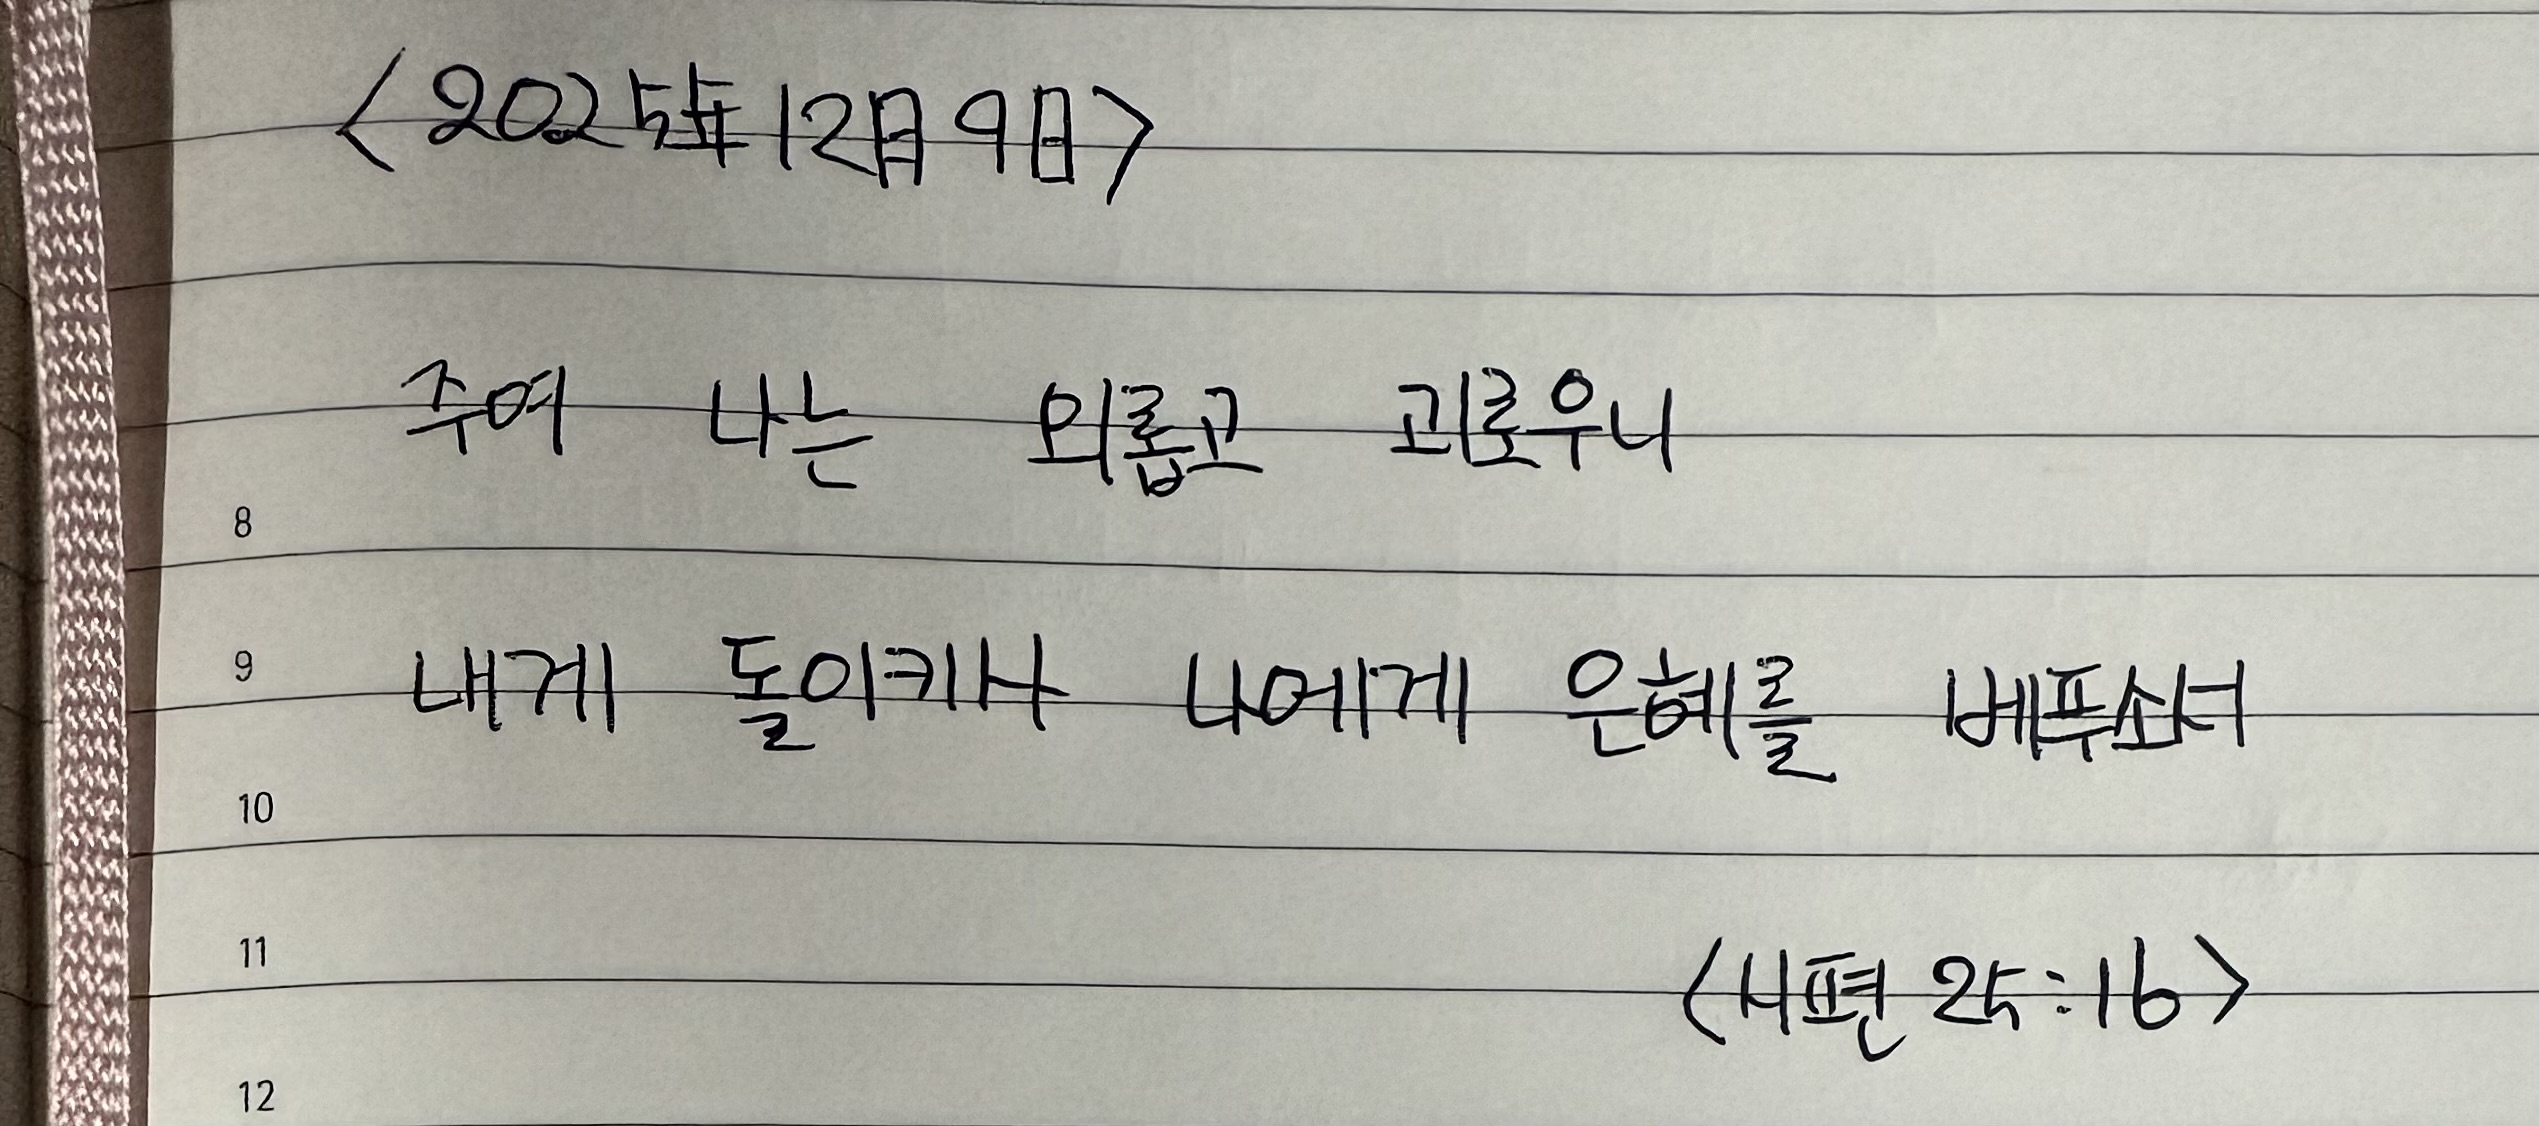 <2025年 12月 9日>
주여 나는 외롭고 괴로우니
8
내게 돌이키사 나에게 은혜를 베푸소서
9
10
<시편 25:16>
11
12